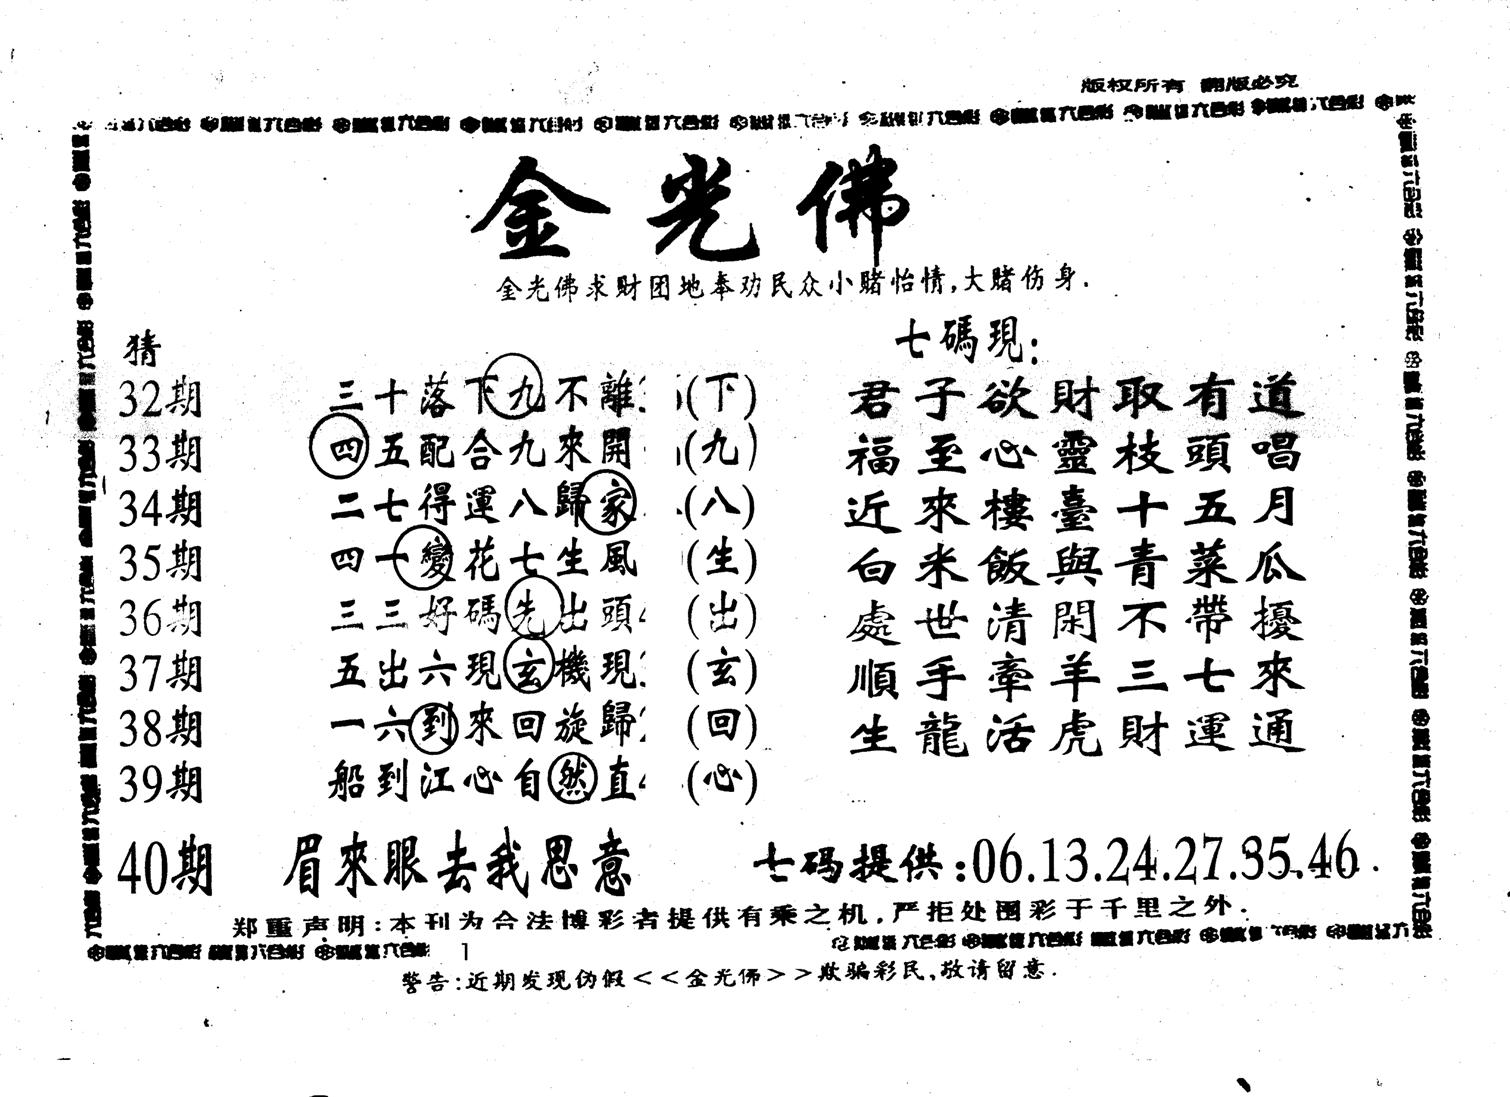 版权所有 翻版必究
金光佛
金光佛求财团地奉劝民众小赌怡情,大赌伤身.
猜
七碼現:
32期 三十落下九不離 (下) 君子欲財取有道
33期 四五配合九來開 (九) 福至心靈枝頭唱
34期 二七得運八歸家 (八) 近來樓臺十五月
35期 四十變花七生風 (生) 白米飯與青菜瓜
36期 三三好碼先出頭 (出) 處世清閑不帶擾
37期 五出六現玄機現 (玄) 順手牽羊三七來
38期 一六到來回旋歸 (回) 生龍活虎財運通
39期 船到江心自然直 (心)
40期 眉來眼去我思意 七码提供:06.13.24.27.35.46.
郑重声明:本刊为合法博彩者提供有乘之机,严拒处围彩于千里之外.
警告:近期发现伪假<<金光佛>>欺骗彩民,敬请留意.